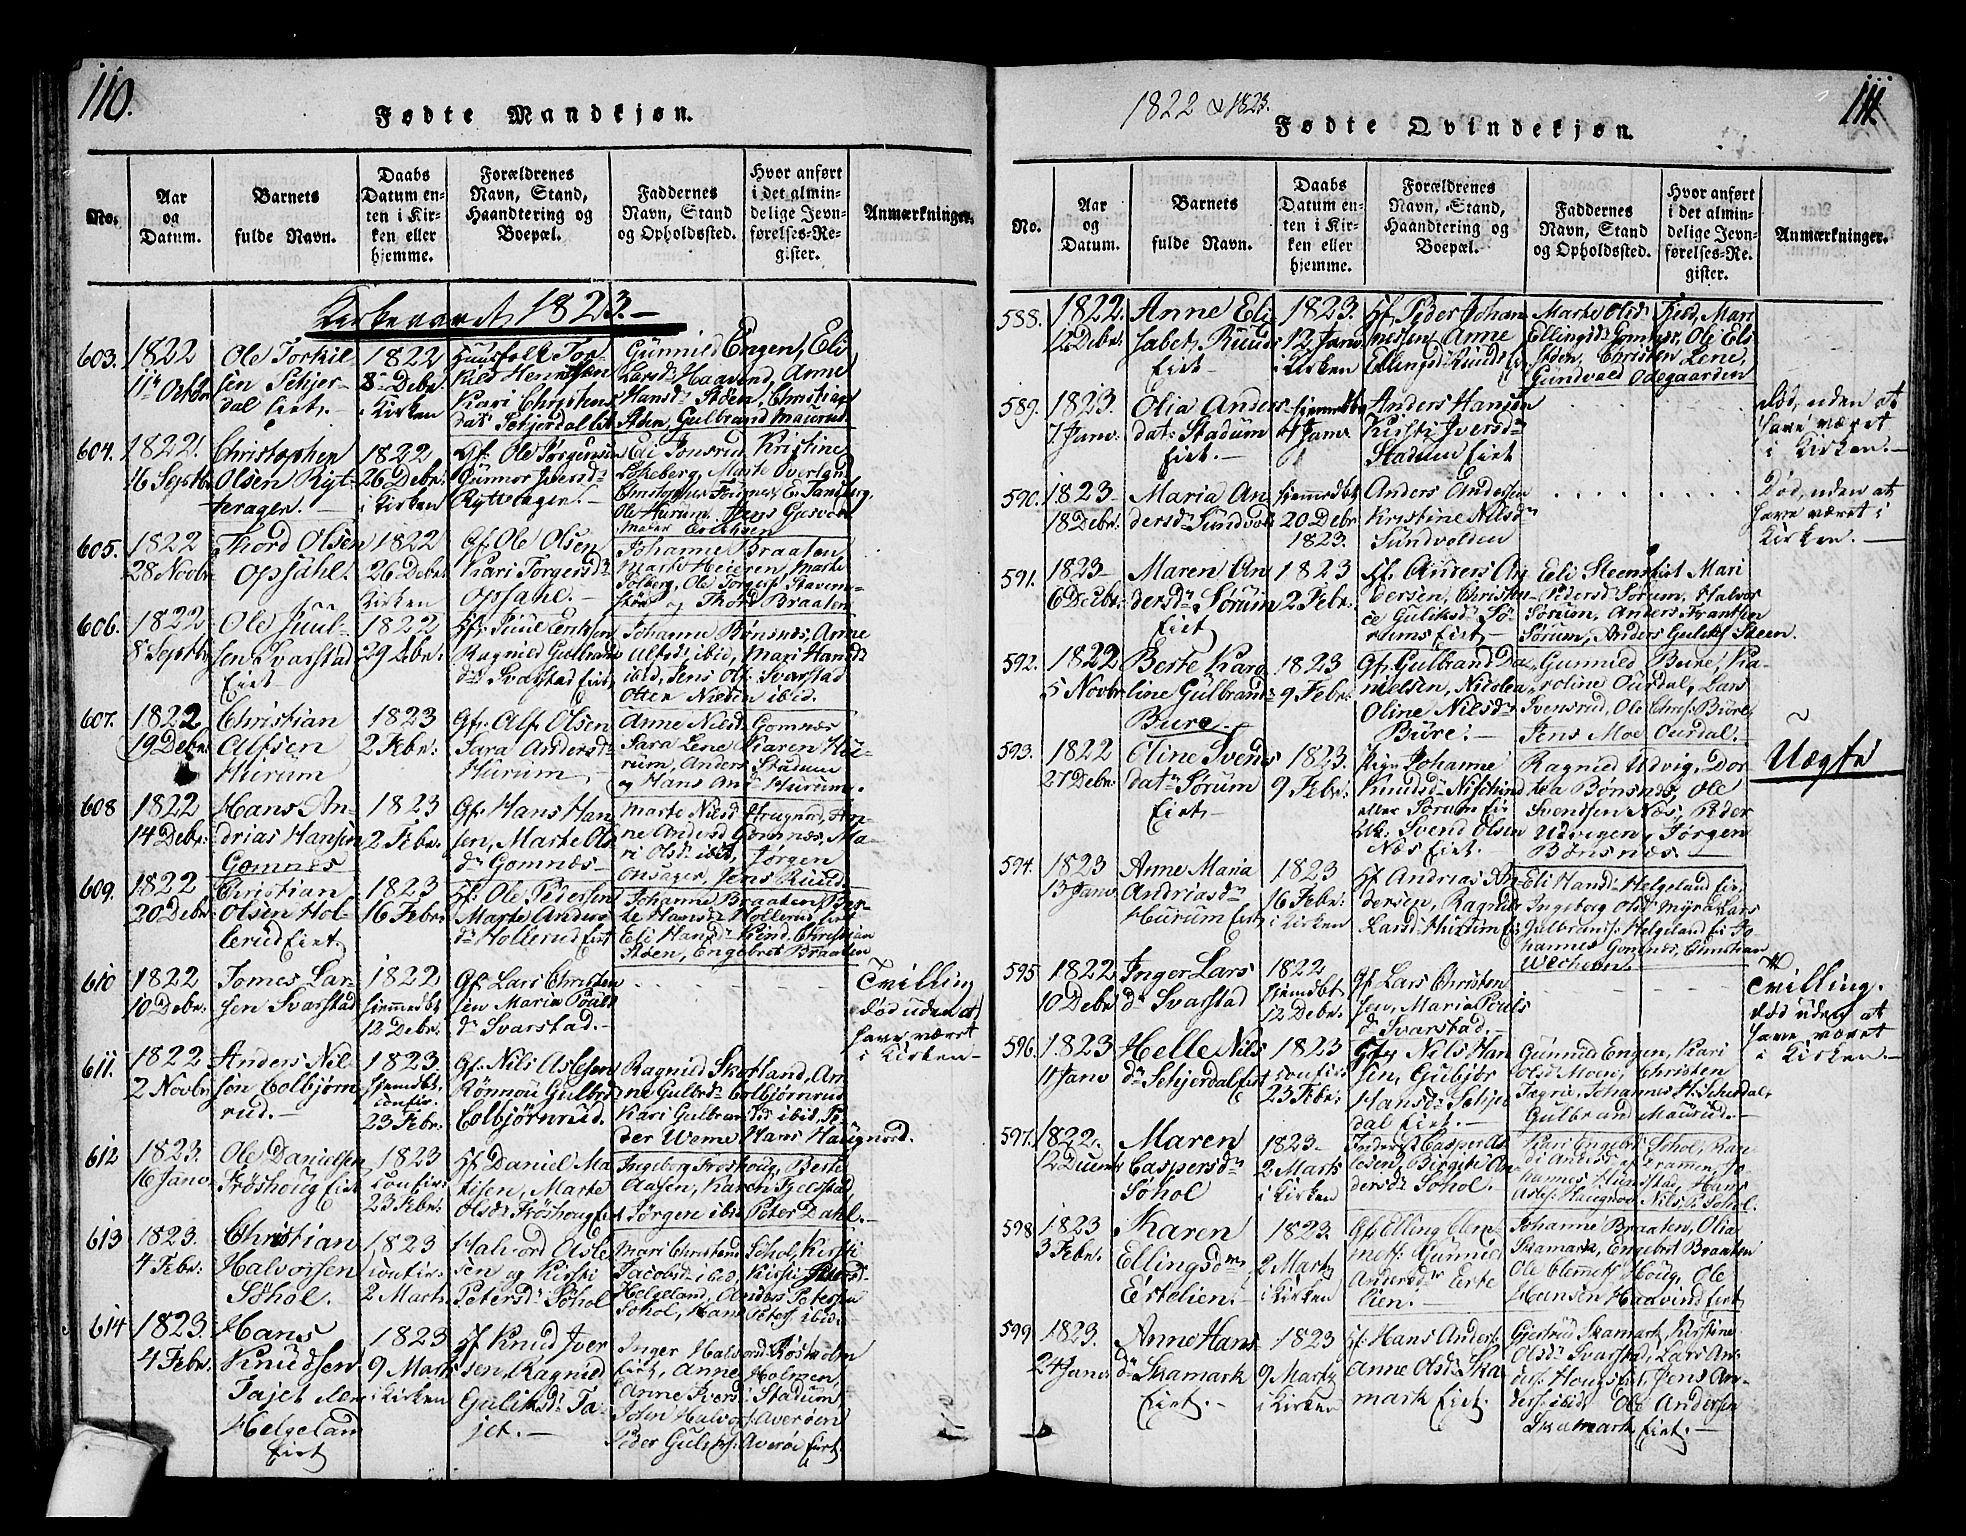 110.
Fødte Mandkjøn.
No.
Aar
og
Datum.
Barnets
fulde Navn.
Daabs
Datum en-
ten i Kir-
ken eller
hjemme.
Forældrenes
Navn, Stand,
Haandtering og
Boepæl.
Faddernes
Navn, Stand
og Opholdssted.
Hvor anført
i det almin-
delige Jevn-
førelses-Re-
gister.
Anmærkninger.
Kirkeaaret 1823.
603.
1822
11te Octbr
Ole Torkil
sen Setjer-
dal Eiet.
1822
8 Debr
i Kirken
Huusfolk Tor-
Kari Christens
datr Setjerdal Eiet
Gunnild Engen, Eli
Larsdr Haavend, Anne
Hansdr Stöen, Christian
Stöen, Gulbrand Maurud
604.
1822.
16 Septbr
Christopher
Olsen Ryt-
terager.
1822
26 Debr:
i Kirken
Gf. Ole Jørgensen
Gunnor Iversdr
Rytterager.
Eli Jonsrud, Kristine
Løkeberg, Marte Overland
605.
1822
28 Novbr
Thord Olsen
Opsahl.
1822
26 Debr
i Kirken
Gf. Ole Olsen
Kari Torgersdr
Opsahl.
Johanne Braaten
Solberg, Ole Torgers Stavem-
og Thord Braaten
606.
1822
8 Septbr
Ole Juul-
sen Svarstad
Eiet
1822
29 Debr:
Hf. Juul Eriksen
Ragnild Gulbrands
dr Svarstad Eiet
Johanne Bønsnæs, Anne
ibid, Mari Hansdr
ibid, Jens Ols: Svarstad
ibid.
607.
1822
19 Debr
Christian
Alfsen
Hurum
1823
2 Febr:
Gf. Alf Olsen
Sara Andersdr
Hurum
Anne Nilsdr Gomnæs
Sara Lene Karen Hu-
rum, Anders Stadum
og Hans And Hurum.
608
1822
14 Debr:
Hans An-
drias Hansen
Gomnæs
1823
2 Febr.
Gf. Hans Han
sen, Marte Ols
dr Gomnæs
Marte Nilsd Haugnord, An-
ne Andersd Gomnæs, Ma-
ri Olsdr ibid, Jørgen
Onsager, Jens Ruud
609.
1822
20 Debr
Christian
Olsen Hol-
lerud Eiet.
1823
16 Febr.
Hf. Ole Pedersen
Marte Anders
dr Hollerud Eiet
Johanne Braaten, Ber-
te Hansdr Hollerud Eiet
Eli Hansdr Kind, Christian
Stöen, Engebret Braaten
610
1822
10 Debr
Tomes Lar-
sen Svarstad
1822
hjemmedbt
12 Debr.
Gf. Lars Christen
sen Maria Pouls
dr Svarstad.
Tvilling
død uden at
have været
i Kirken
611.
1822
2 Novbr
Anders Nil-
sen Colbjørn
rud.
1823
hjemdbt
confir:
23 Febr.
Gf. Nils Aslesen
Rønnou Gulbrds
Colbjørnrud.
Ragnild Skollland, An-
ne Gulbrdr Colbjørnrud
Kari Gulbran ibid. Pe-
der Weme Hans Haugnord.
612
1823.
16 Janv
Ole Danielsen
Frøshoug Eiet
1823
confir:
23 Febr.
Hf. Daniel Ma-
tisen, Marte
Olsdr Frøshoug Eiet
Ingeborg Frøshoug, Berte
Aasen, Karen Fjelstad
Jørgen ibid Peter Dahl.
613
1823.
4 Febr:
Christian
Halvorsen
Söhol.
1823
confir:
2 Marts
Halvord Asle
sen og Kirsti
Petersdr Søhol
Mari Christensd Söhol, Kirsti
Jacobsdr ibid, Kirsti Petersd
Helgeland, Anders Petersen
Søhol, Hans Peters: ibid.
614
1823.
4 Febr.
Hans
Knudsen
Tajet eller
Helgeland
Eiet
1823
9 Marts
i Kirken
Hf. Knud Iver
sen, Ragnild
Guliksdr Ta-
jet.
Inger Halvord
Eiet, Anne Holmen
Anne Iversd: Stadum
John Halvors Averøen
Peder Guls: Averøe Eiet.
1822 & 1823.
111.
Fødte Qvindekjøn.
No.
Aar
og
Datum.
Barnets
fulde Navn.
Daabs
Datum en-
ten i Kir-
ken eller
hjemme.
Forældrenes
Navn, Stand,
Haandtering og
Boepæl.
Faddernes
Navn, Stand
og Opholdssted.
Hvor anført
i det almin-
delige Jevn-
førelses-Re-
gister.
Anmærkninger.
588.
1822
12 Debr.
Anne Eli
sabet Ruud
Eiet
1823.
12 Janv
i Kirken
Hf. Peder Johan
nesen Anne
Ellingsdr Ruuds Ei
Marte Olsdr Field, Mari
Ellingsdr Gomnæs, Ole Els
Christen Lene
Gundvald Odegaarden
589.
1823.
7 Janv.
Olia Anders
datr Stadum
Eiet.
hjemmedbt
Janv
Anders Hansen
Kirsti Iversdr
Stadum Eiet
Død, uden at
have været
i Kirken.
590.
1823
18 Debr.
Maria An
dersdr Sundvol
hjemmedbt
20 Debr
1823.
Anders Andersen
Kristine Nilsdr
Sundvolden
Død, uden at
have været i
Kirken.
591.
1823
6 Debr
Maren An
dersdr Sørum
Eiet
1823
2 Febr:
Hf. Anders An
dersen, Christen
ce Guliksdr Sö
rums Eiet
Eli Steens Eiet Mari
Pedersdr Sørum, Halvor
Sørum, Anders Frantsen
Sørum, Anders Guliks: Steen.
592.
1822
5 Novbr
Berte Karo
line Gulbrands
Bure.
1823
9 Febr.
Gf. Gulbrand Da
nielsen, Nicolea
Oline Nilsdr
Bure.
Gunnild Bure, Ka-
roline Ourdal, Lars
Svensrud, Ole Chris: Bure,
Jens Moe Ourdal.
593.
1822
27 Debr.
Oline Svends
datr Sørum
Eiet
1823.
9 Febr:
Pige Johanne
Knudsdr
eller Sørum Eiet
Svend Olsen
Næs Eiet.
Ragnild Udvig, Dor-
tea Bønsnæs, Ole
Svendsen Næs, Peder
Udvigen, Jørgen
Bønsnæs.
Uægte
594.
1823
13 Janv
Anne Maria
Andriasdr
Hurum Eiet
1823
16 Febr:
i Kirken
Hf. Andrias An-
dersen, Ragnild
Larsdr Hurum Ei
Eli Hansdr Helgeland Ei,
Ingeborg Olsdr Myra Lars
Gulbrands: Helgeland Ei Jo-
hannes Gomnæs, Christian
Wechsen
595
1822
10 Debr
Inger Lars
dr Svarstad
1822
hjemdbt
12 Debr.
Gf. Lars Christen
sen, Maria Pouls
dr Svarstad.
Tvilling.
død uden at
have været
i Kirken
596.
1823
11 Janv
Helle Nils
dr Setjerdal Eiet
1823
confir:
23 Febr.
Gf. Nils Han
sen, Gubjør
Hansdr Setjer
dal Eiet.
Gunnild Engen, Kari
Olsdr Moen, Christen
Johannes H. Setjerdal,
Gulbrand Maurud.
597.
1822.
12 Decembr
Maren
Caspersdr
Söhol
1823
2 Marts
i Kirken
Casper As-
lesen, Birgite An
dersdr Søhol.
Kari Engebr Søhol, Kari
Anders: Framen, Jo-
hannes Hans
Asles: Haugnor Nils P. Søhol.
598
1823
3 Febr:
Karen
Ellingsdr
Eistelien.
1823.
2 Marts
i Kirken
Gf. Elling Clem
mets: Gunnild
Andersdr Eiste
lien.
Johanne Braaten, Olia
Skamark, Engebret Braaten
Ole Clemets: Houg, Ole
Hansen Haavind Eiet
599
1823.
24 Janv
Anne Hans
dr Skamark
Eiet.
1823
9 Marts
i Kirken
Hf. Hans Anders:
Anne Olsdr Ska
mark Eiet.
Gjertrud Skamark, Kirstine
Olsdr Svarstad, Lars An-
Hougstad, Jens An-
ders: ibid, Ole Andersen
Skamark Eiet.